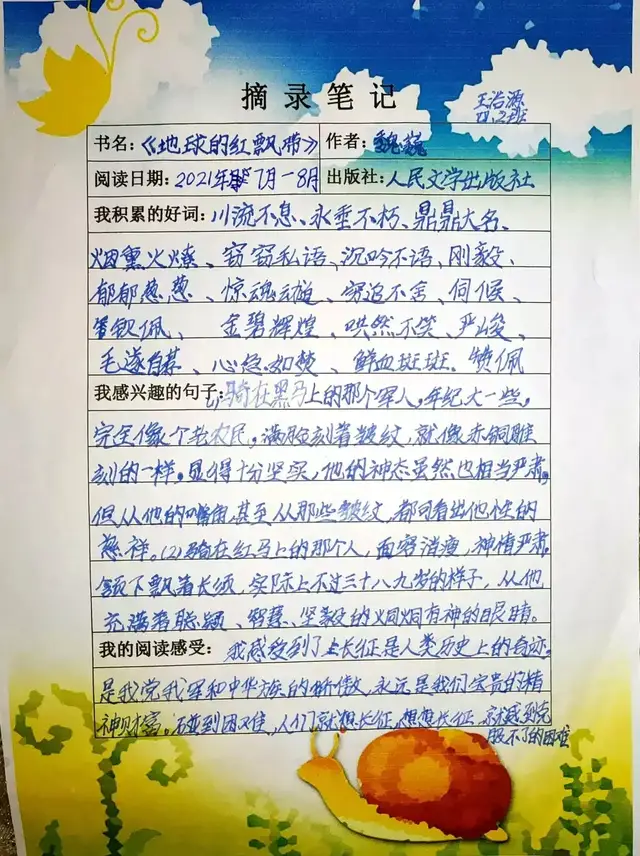 摘录笔记
王浩源
四.2班
书名:《地球的红飘带》 作者:魏巍
阅读日期:2021年7月-8月 出版社:人民文学出版社
我积累的好词:川流不息、永垂不朽、鼎鼎大名、
烟熏火燎、窃窃私语、沉吟不语、刚毅、
郁郁葱葱、惊魂动魄、穷追不舍、伺候、
钦佩、金碧辉煌、哄然不笑、严峻、
毛遂自荐、心急如焚、鲜血斑斑.赞佩
我感兴趣的句子:(1)骑在黑马上的那个军人,年纪大一些,
完全像个老农民。满脸刻着皱纹,就像赤铜雕
刻的一样。显得十分坚实,他的神态虽然也相当严肃,
但从他的嘴角,甚至从那些皱纹,都可看出他性的
慈祥。(2)骑在红马上的那个人,面容消瘦,神情严肃,
颌下飘着长须,实际上不过三十八九岁的样子,从他
充满着聪颖、智慧、坚毅的炯炯有神的眼睛。
我的阅读感受:我感受到了长征是人类历史上的奇迹,
是我党我军和中华族的骄傲,永远是我们宝贵的精
神财富。碰到困难,人们就想长征,想想长征,就感到克
服不了的困难